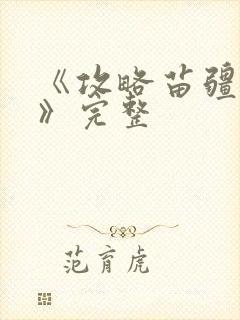 《攻略苗疆
》完整
范育虎